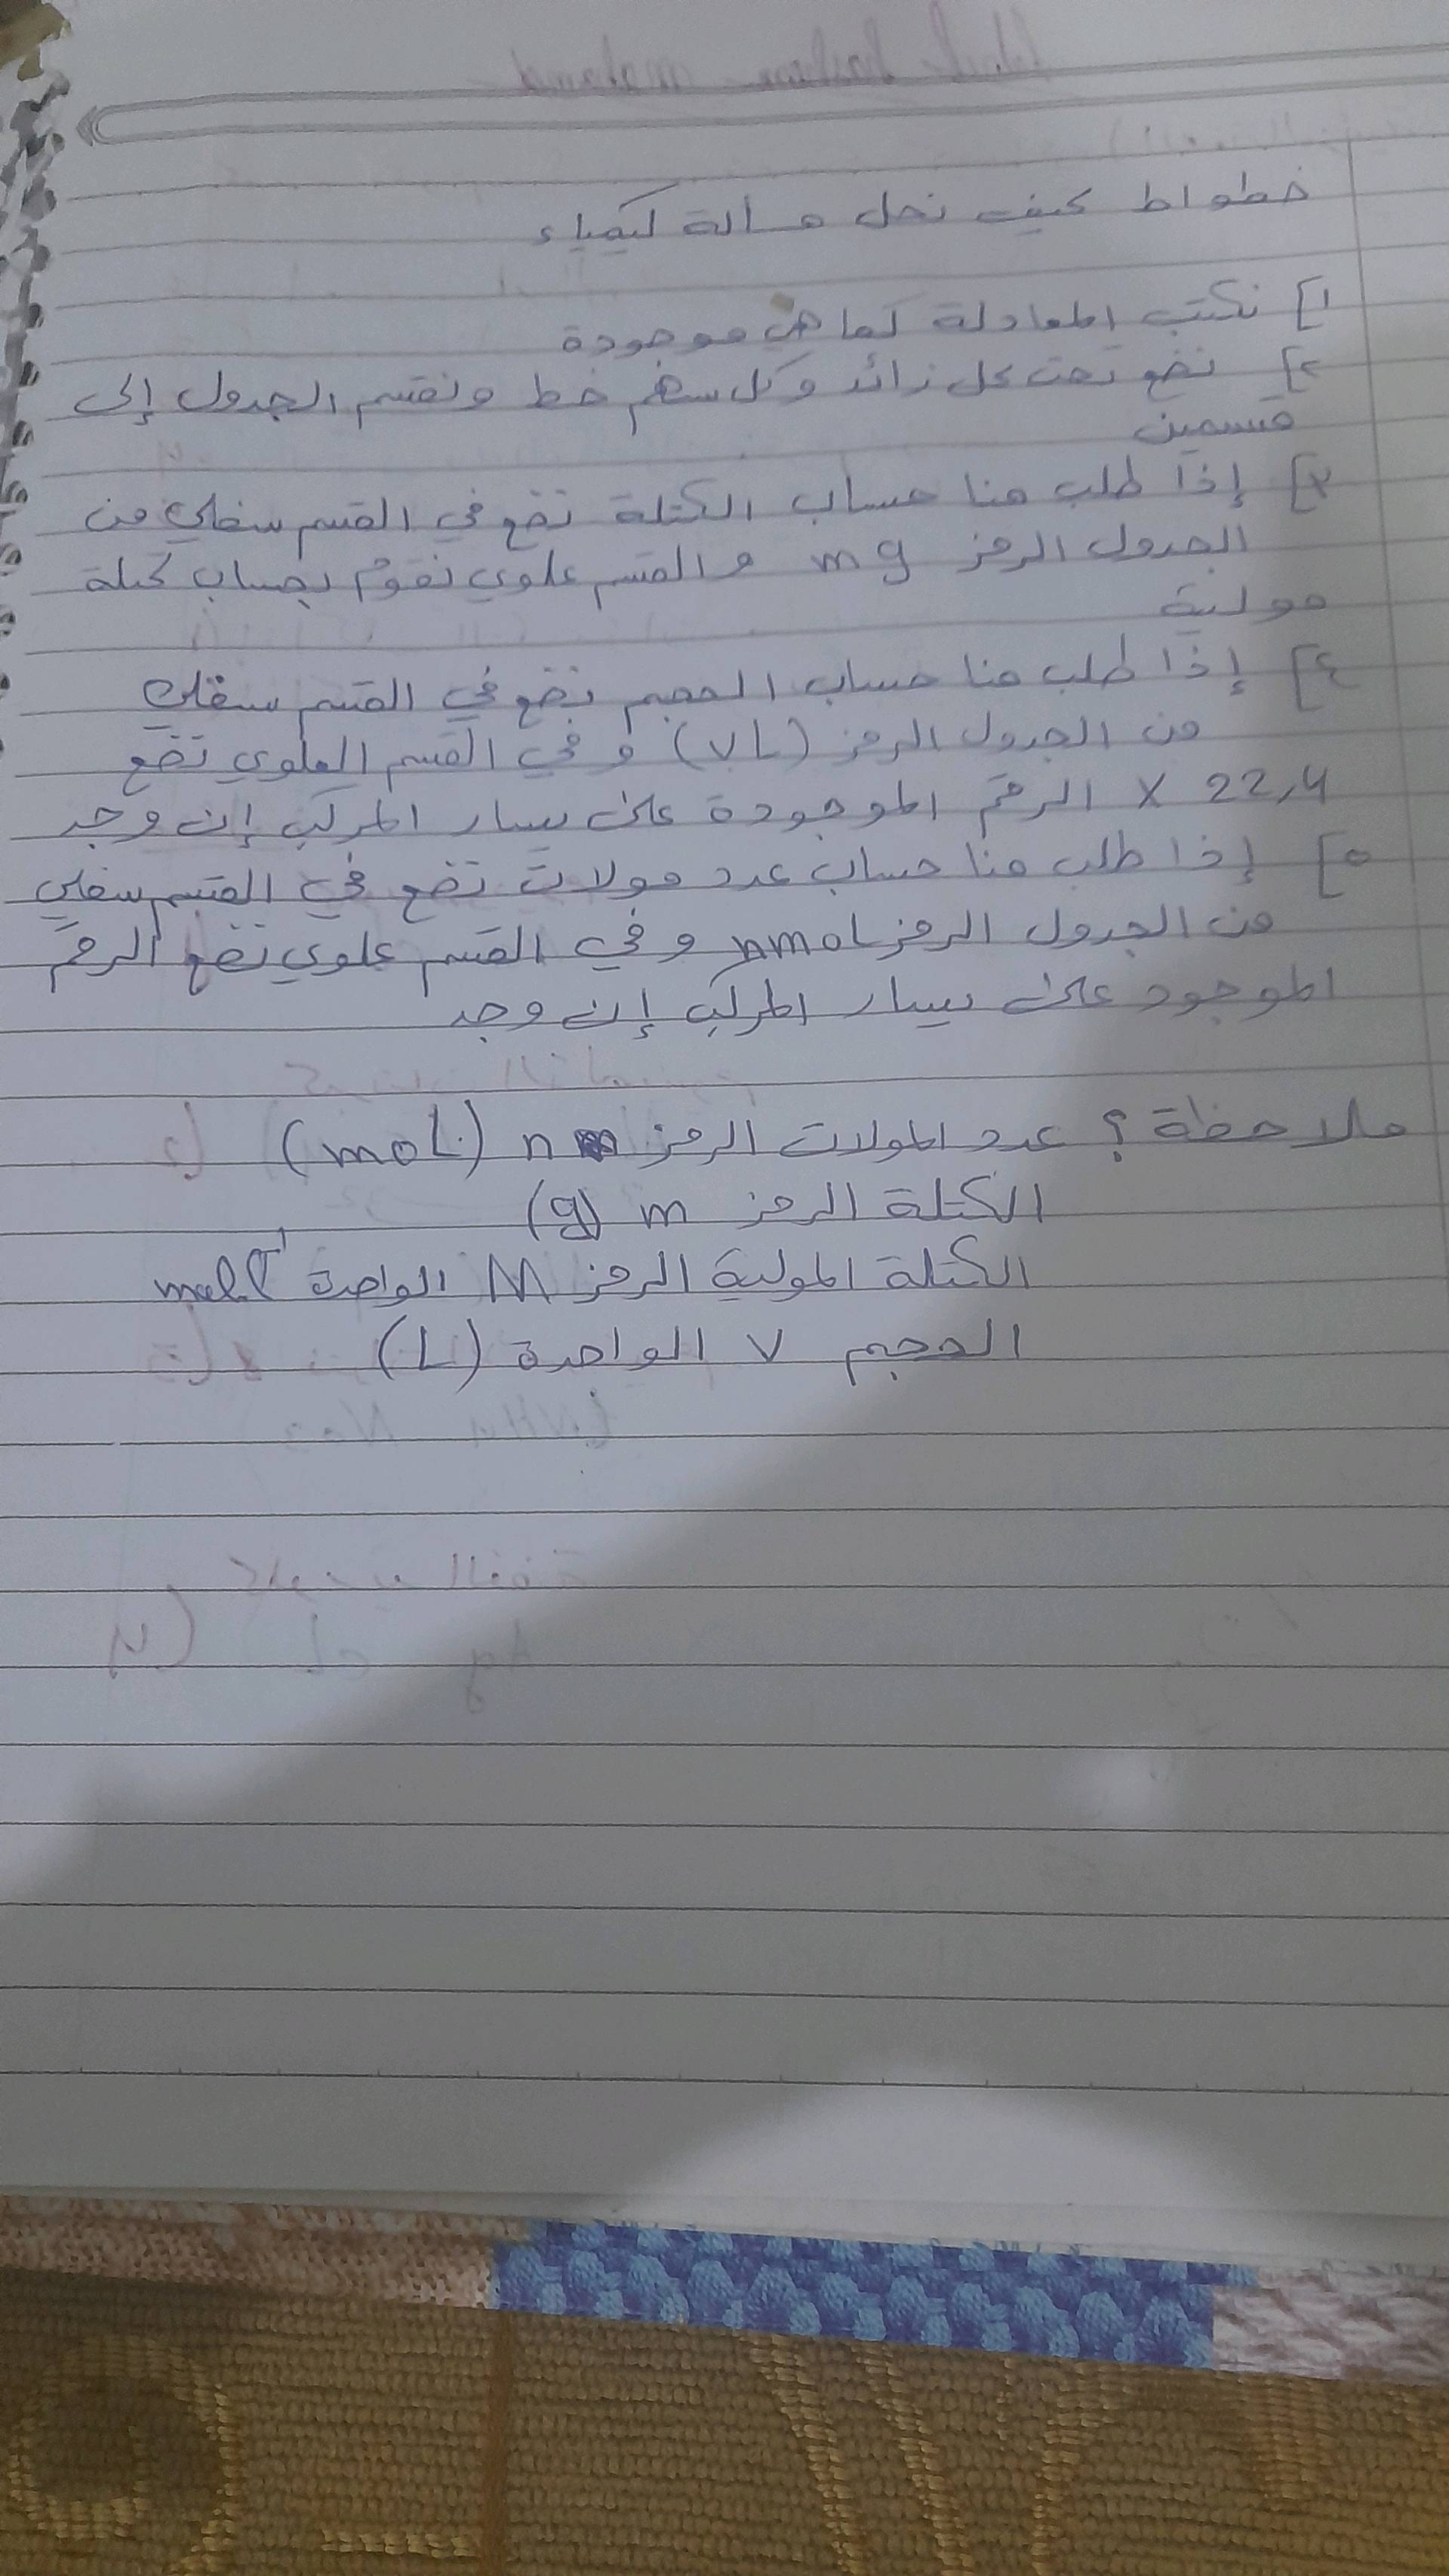 خطواط كيف نحل مسألة كيمياء
١] نكتب المعادلة كما هي موجودة
٢] نضع تحت كل زائد وكل سهم خط ونقسم الجدول إلى
قسمين
٣] إذا طلب منا حساب الكتلة نضع في القسم سفلي من
الجدول الرمز mg و القسم علوي نقوم بحساب كتلة
مولية
٤] إذا طلب منا حساب الحجم نضع في القسم سفلي
من الجدول الرمز (VL) و في القسم العلوي نضع
22,4 X الرقم الموجودة على يسار المركب إن وجد
٥] إذا طلب منا حساب عدد مولات نضع في القسم سفلي
من الجدول الرمز nmol و في القسم علوي نضع الرقم
الموجود على يسار المركب إن وجد
ملاحظة ؟ عدد المولات الرمز n (mol)
الكتلة الرمز m (g)
الكتلة المولية الرمز M الواحدة
الحجم V الواحدة (L)